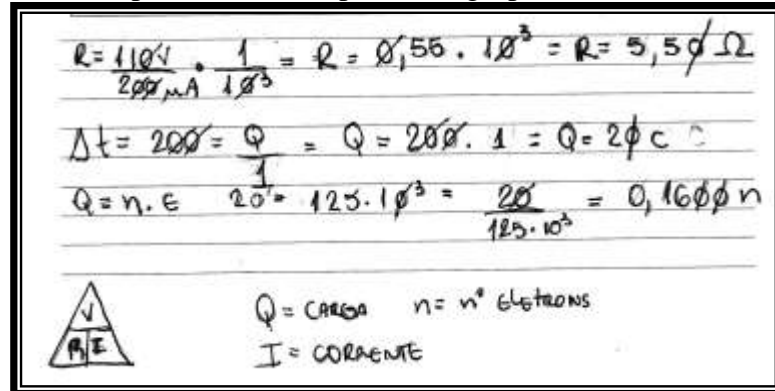 R = 110V / 200 µA . 1 / 10³ = R = 0,55 . 10³ = R = 5,50 Ω
Δt = 200 = Q / 1 = Q = 200 . 1 = Q = 20 c
Q = n . e 20 = 125 . 10³ = 20 / 125 . 10³ = 0,1600 n
V
R I
Q = CARGA n = nº ELETRONS
I = CORRENTE